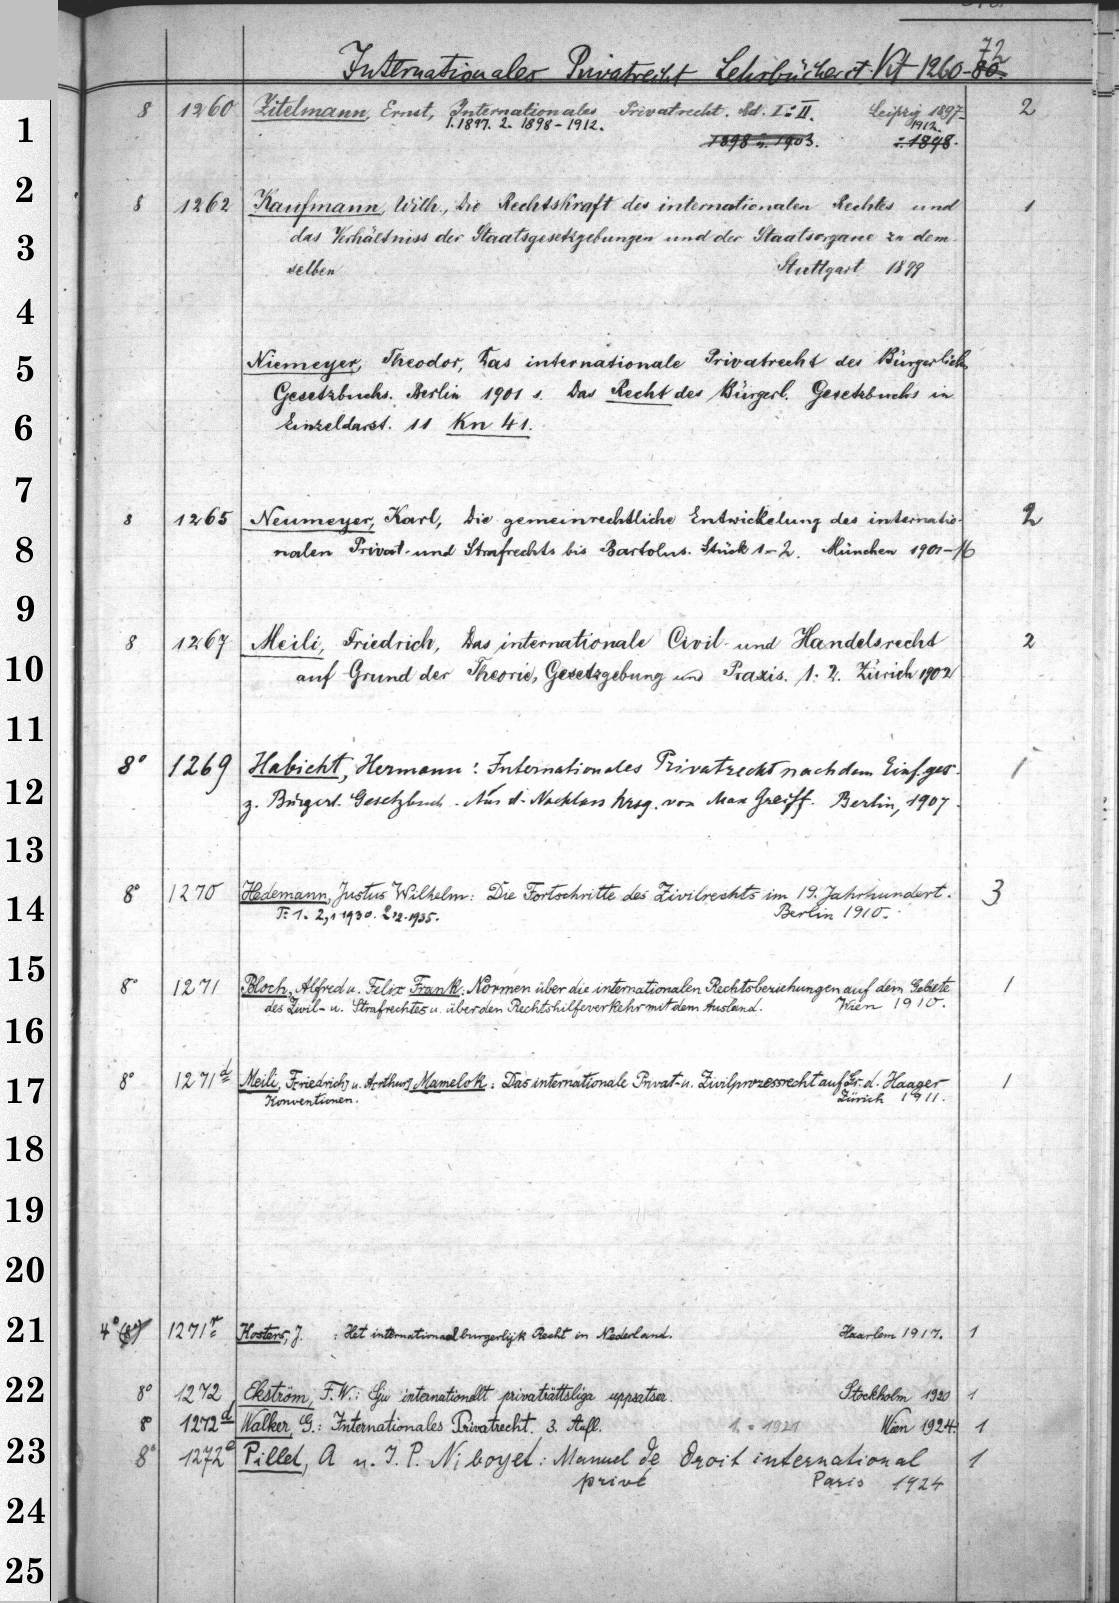 Internationales Privatrecht Lehrbücher ct. Kt 1260-80 72
1
8 1260 Zitelmann, Ernst, Internationales Privatrecht. Bd. I-II. Leipzig 1897- 2
1. 1897. 2. 1898-1912. 1912.
1898 u. 1903. -1898.
2
8 1262 Kaufmann, Wilh., Die Rechtskraft des internationalen Rechtes und 1
3
das Verhältniss der Staatsgesetzgebungen und der Staatsorgane zu dem-
selben Stuttgart 1899
4
5
Niemeyer, Theodor, Das internationale Privatrecht des Bürgerlichen
Gesetzbuchs. Berlin 1901 s. Das Recht des Bürgerl. Gesetzbuchs in
6
Einzeldarst. 11 Kn 41.
7
8 1265 Neumeyer, Karl, Die gemeinrechtliche Entwickelung des internatio- 2
8
nalen Privat- und Strafrechts bis Bartolus. Stück 1-2. München 1901-16
9
8 1267 Meili, Friedrich, Das internationale Civil- und Handelsrecht 2
10
auf Grund der Theorie, Gesetzgebung und Praxis. 1. 2. Zürich 1902
11
8° 1269 Habicht, Hermann: Internationales Privatrecht nach dem Einf.ges. 1
12
z. Bürgerl. Gesetzbuch. Aus d. Nachlass hrsg. von Max Greiff. Berlin, 1907.
13
14
8° 1270 Hedemann, Justus Wilhelm: Die Fortschritte des Zivilrechts im 19. Jahrhundert. 3
T: 1. 2,1 1930. 2,2. 1935. Berlin 1910-.
15
8° 1271 Bloch, Alfred u. Felix Frank: Normen über die internationalen Rechtsbeziehungen auf dem Gebiete 1
des Zivil- u. Strafrechtes u. über den Rechtshilfeverkehr mit dem Ausland. Wien 1910.
16
17
8° 1271d Meili, Friedrich, u. Arthur Mamelok: Das internationale Privat- u. Zivilprozessrecht auf Gr. d. Haager 1
Konventionen. Zürich 1911.
18
19
20
21
4° (8°) 1271r Kosters, J. : Het internationaal burgerlijk Recht in Nederland. Haarlem 1917. 1
22
8° 1272 Ekström, F.W.: Sju internationellt privaträttsliga uppsatser. Stockholm 1920 1
8° 1272d Walker, G.: Internationales Privatrecht. 3. Aufl. 1921 Wien 1924. 1
23
8° 1272e Pillet, A u. J. P. Niboyet: Manuel de Droit international 1
privé Paris 1924
24
25